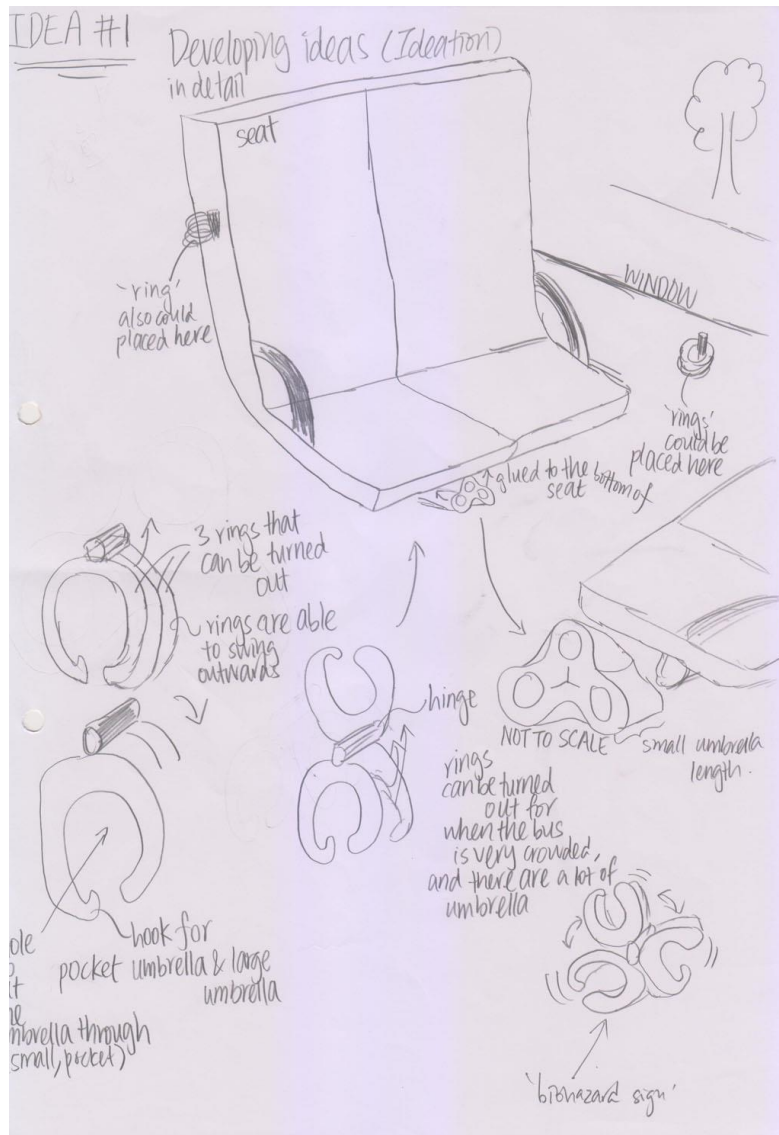 IDEA #1
Developing ideas (Ideation)
in detail
seat
'ring'
also could
placed here
WINDOW
'rings'
could be
placed here
glued to the bottom of
seat
3 rings that
can be turned
out
rings are able
to swing
outwards
hinge
NOT TO SCALE
small umbrella
length.
rings
can be turned
out for
when the bus
is very crowded,
and there are a lot of
umbrella
hook for
pocket umbrella & large
umbrella
ole
mbrella through
small, pocket)
'biohazard sign'